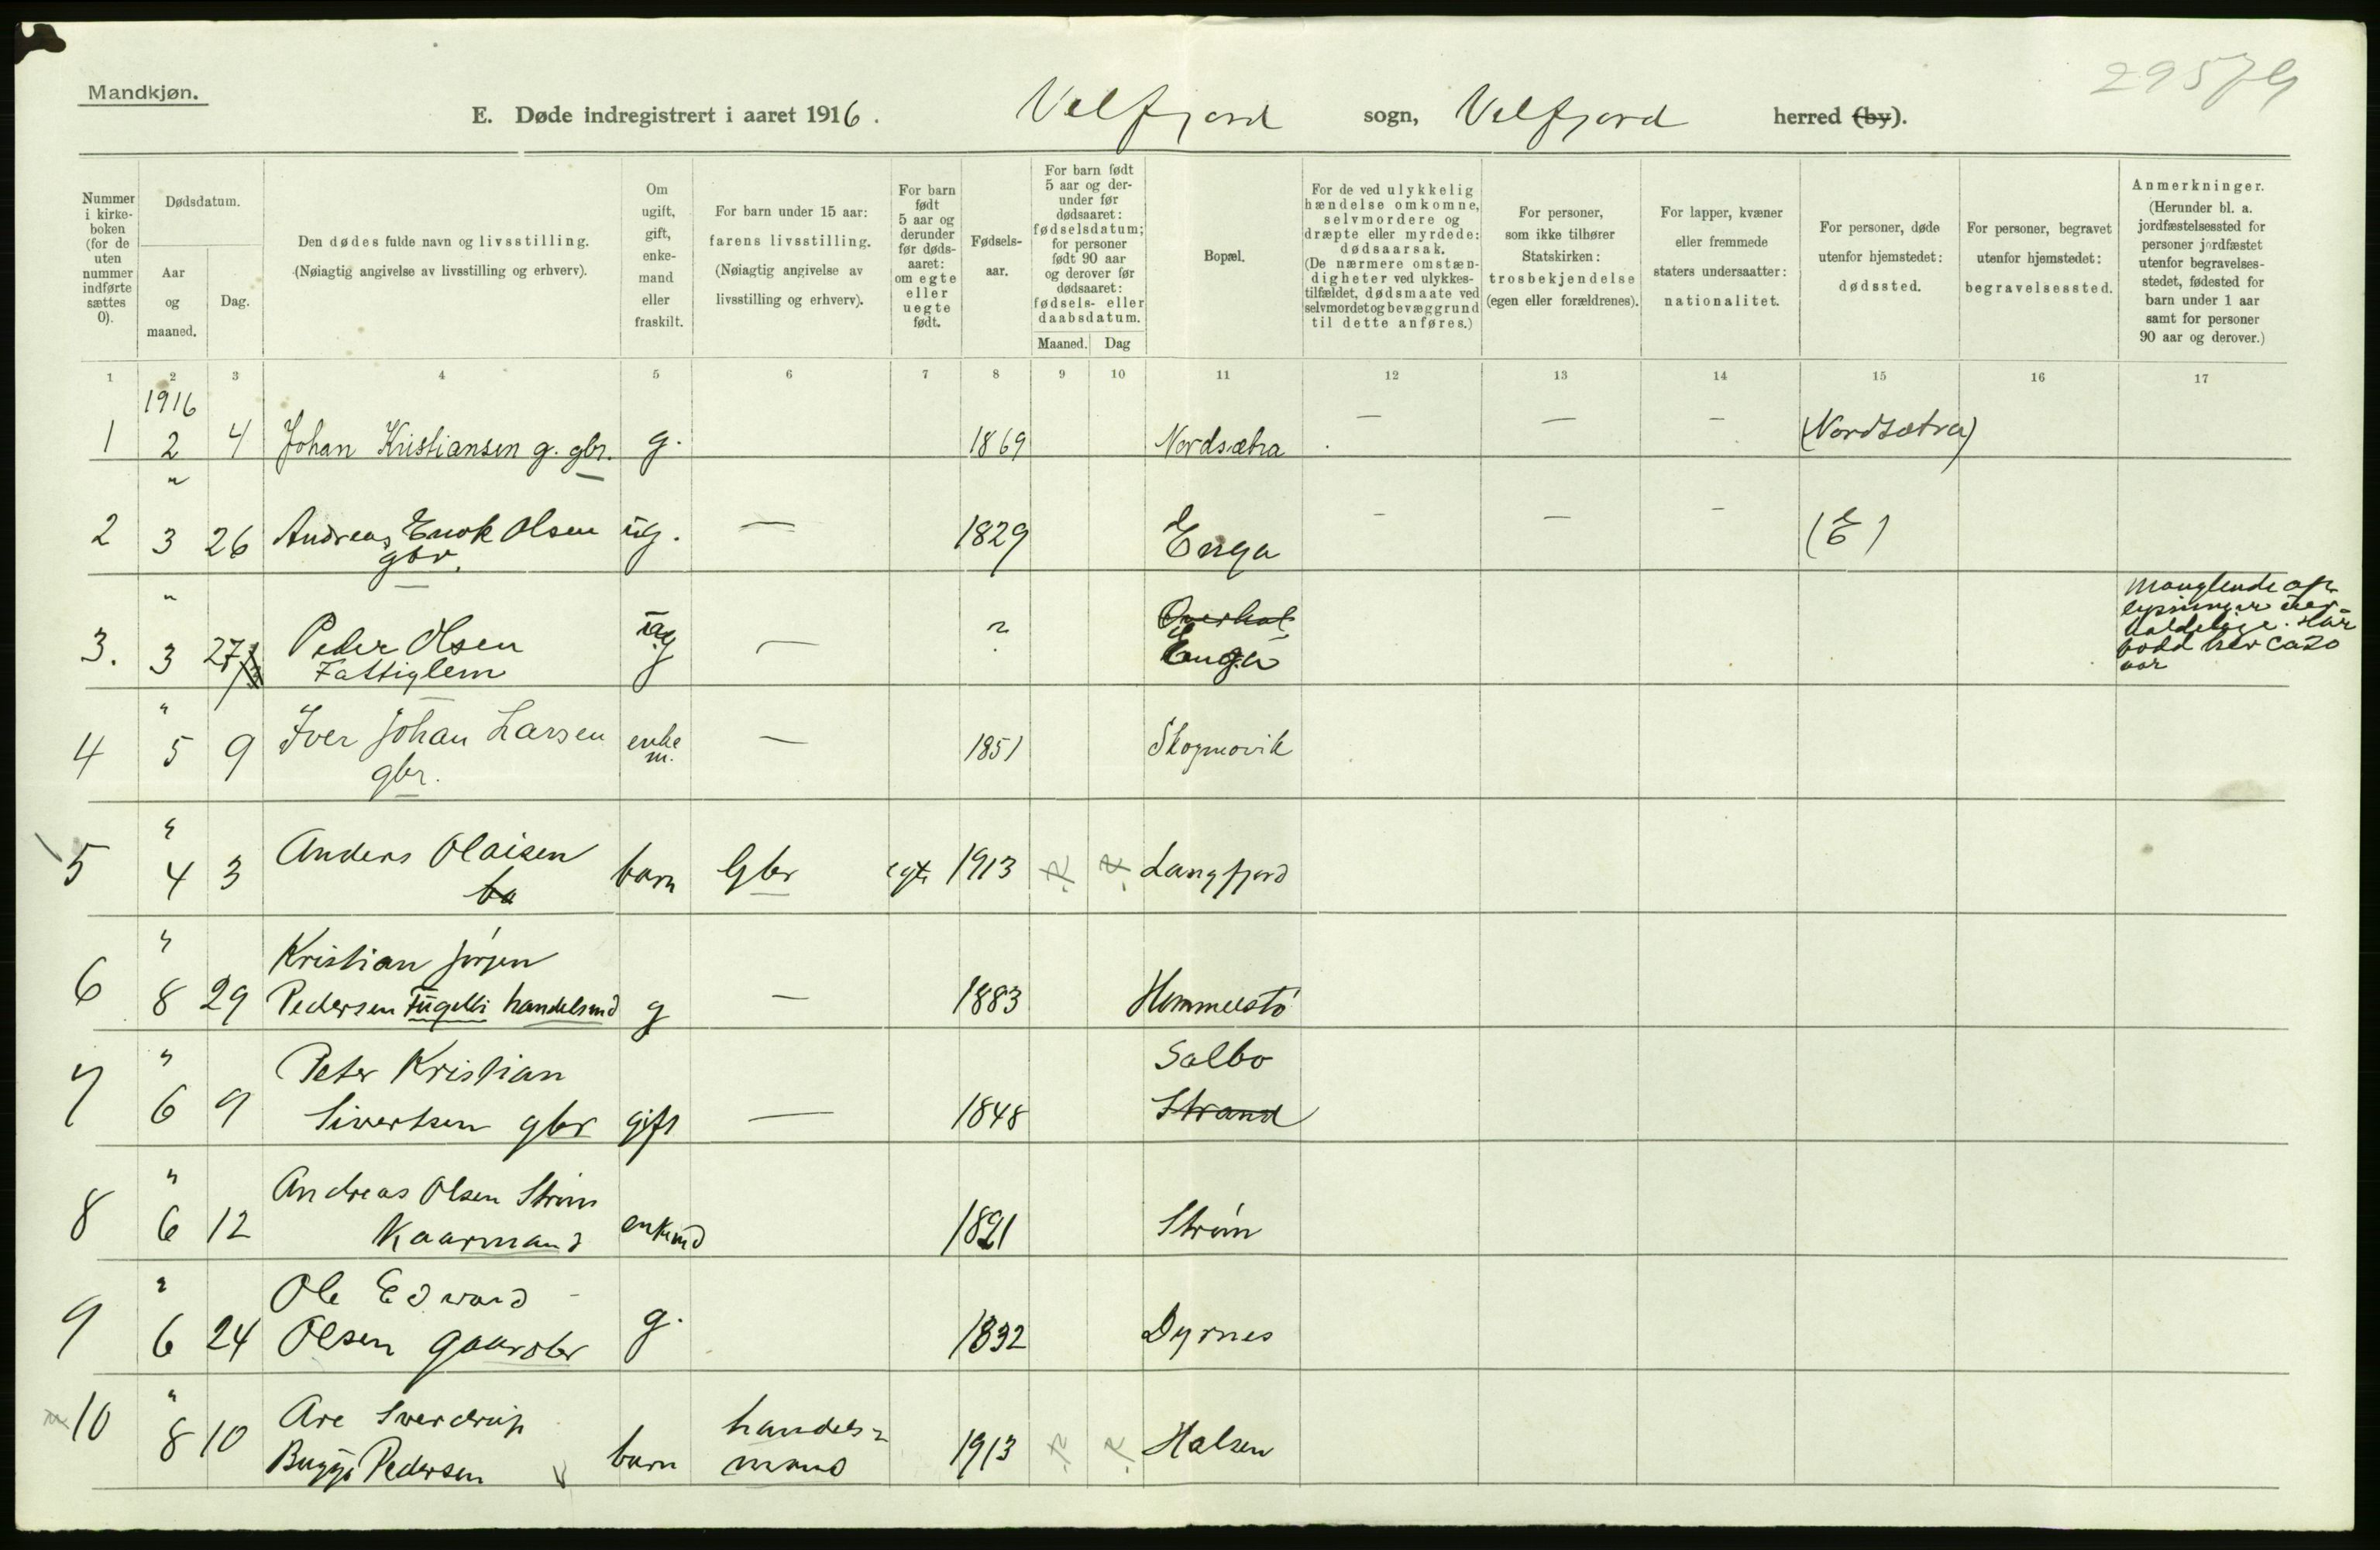 Mandkjøn.
29579
E. Døde indregistrert i aaret 1916. Velfjord sogn, Velfjord herred (by).
Nummer i kirke-boken (for de uten nummer indførte sættes 0).
Dødsdatum.
Aar og maaned.
Dag.
Den dødes fulde navn og livsstilling. (Nøiagtig angivelse av livsstilling og erhverv).
Om ugift, gift, enke-mand eller fraskilt.
For barn under 15 aar: farens livsstilling. (Nøiagtig angivelse av livsstilling og erhverv).
For barn født 5 aar og derunder før døds-aaret: om egte eller uegte født.
Fødsels-aar.
For barn født 5 aar og der-under før dødsaaret: fødselsdatum; for personer født 90 aar og derover før dødsaaret: fødsels- eller daabsdatum.
Maaned. Dag
Bopæl.
For de ved ulykkelig hændelse omkomne, selvmordere og dræpte eller myrdede: dødsaarsak. (De nærmere omstæn-digheter ved ulykkes-tilfældet, dødsmaate ved selvmordet og bevæggrund til dette anføres.)
For personer, som ikke tilhører Statskirken: trosbekjendelse (egen eller forældrenes).
For lapper, kvæner eller fremmede staters undersaatter: nationalitet.
For personer, døde utenfor hjemstedet: dødssted.
For personer, begravet utenfor hjemstedet: begravelsessted.
Anmerkninger. (Herunder bl. a. jordfæstelsessted for personer jordfæstet utenfor begravelses-stedet, fødested for barn under 1 aar samt for personer 90 aar og derover.)
1 2 3 4 5 6 7 8 9 10 11 12 13 14 15 16 17
1916
1 2 4 Johan Kristiansen g. gbr. g. 1869 Nordsætra — — — (Nordsætra)
"
2 3 26 Andreas Enok Olsen ug. — 1829 Enga — — — (E)
gbr.
"
3. 3 27 Peder Olsen ug — ? Enga
Fattiglem
Manglende op-
lysninger
bodd her ca 20
aar
"
4 5 9 Iver Johan Larsen enke — 1851 Skogmovik
gbr. m.
"
5 4 3 Anders Olaisen barn Gbr egte 1913 ? ? Langfjord
ba
"
Kristian Jørgen
6 8 29 Pedersen Fugelli handelsmd g — 1883 Hommelstø
"
Peter Kristian Salbo
7 6 9 Sivertsen gbr gift — 1848 Strand
"
Andreas Olsen Strøm
8 6 12 Kaarmand enkemd 1821 Strøm
"
Ole Edward
9 6 24 Olsen gaardbr g. 1832 Dyrnes
"
Are Sverdrup handels-
10 8 10 Bugge Pedersen barn mand 1913 ? ? Halsen